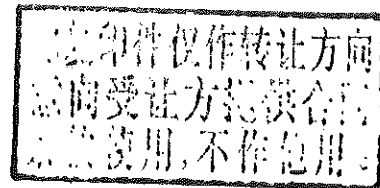 印件仅作转让方向
向受让方提供合同
使用,不作他用